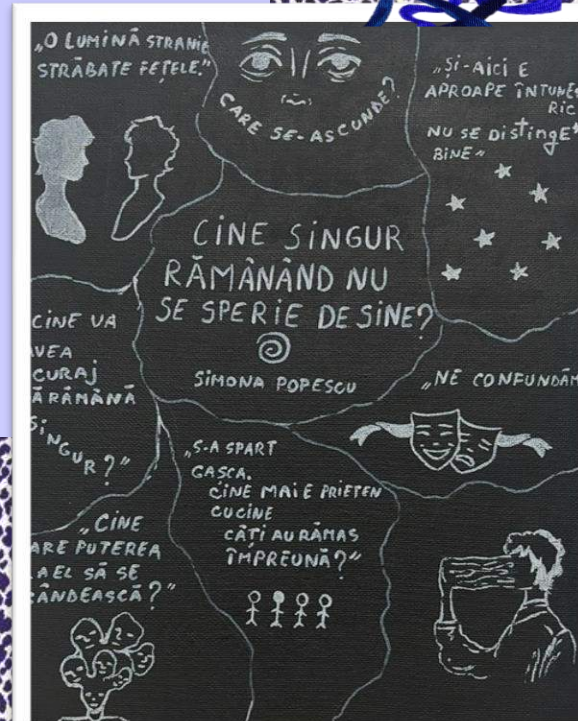 „O LUMINĂ STRANIE
STRĂBATE FEȚELE."
CARE SE-ASCUNDE?
„ȘI-AICI E
APROAPE ÎNTUNE
RIC
NU SE DISTINGE
BINE"
CINE SINGUR
RĂMÂNÂND NU
SE SPERIE DE SINE?
SIMONA POPESCU
CINE VA
AVEA
CURAJ
SINGUR?"
„NE CONFUNDĂM
„S-A SPART
GAȘCA.
CINE MAI E PRIETEN
CU CINE
CÂȚI AU RĂMAS
ÎMPREUNĂ?"
„CINE
ARE PUTEREA
LA EL SĂ SE
GÂNDEASCĂ?"